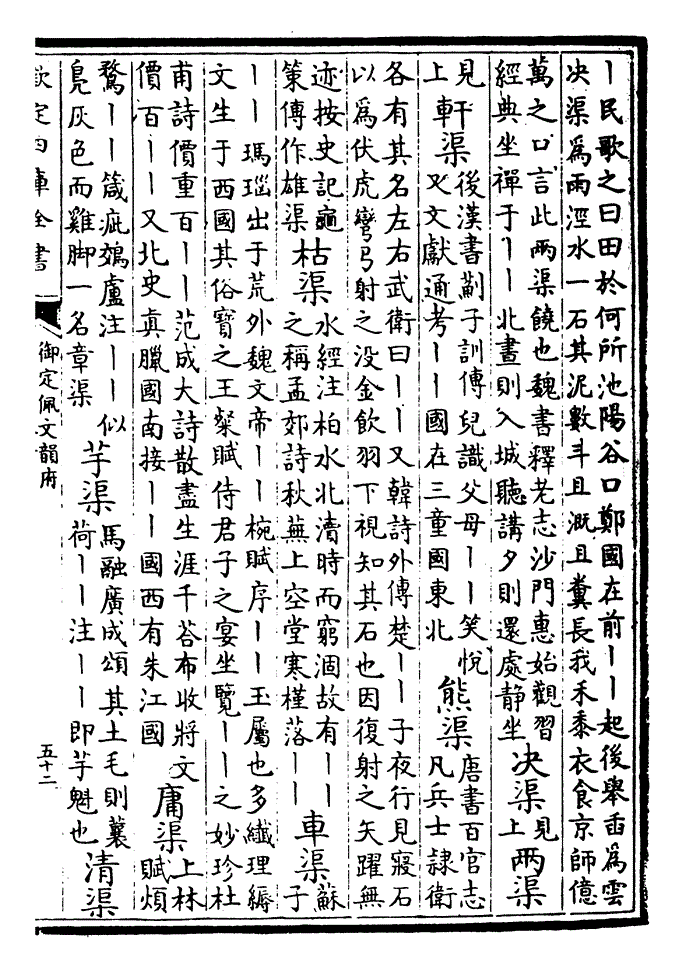 丨民歌之曰田於何所池陽谷口鄭國在前丨丨起後舉臿為雲
决渠為雨涇水一石其泥數斗且溉且糞長我禾黍衣食京師億
萬之口言此兩渠饒也魏書釋老志沙門惠始觀習
經典坐禪于丨丨北晝則入城聽講夕則還處静坐
决渠
見
上
兩渠
見
上
軒渠
後漢書薊子訓傳兒識父母丨丨笑悅
又文獻通考丨丨國在三童國東北
熊渠
唐書百官志
凡兵士隷衛
各有其名左右武衛曰丨丨又韓詩外傳楚丨丨子夜行見寢石
以為伏虎彎弓射之没金飲羽下視知其石也因復射之矢躍無
迹按史記龜
策傳作雄渠
枯渠
水經注柏水北瀆時而窮涸故有丨丨
之稱孟郊詩秋蕪上空堂寒槿落丨丨
車渠
蘇
子
丨丨瑪瑙出于荒外魏文帝丨丨椀賦序丨丨玉屬也多纖理縟
文生于西國其俗寶之王粲賦侍君子之宴坐覽丨丨之妙珍杜
甫詩價重百丨丨范成大詩散盡生涯千荅布收將文
價百丨丨又北史真臘國南接丨丨國西有朱江國
庸渠
上林
賦煩
鶩丨丨箴疵鵁盧注丨丨似
鳧灰色而雞脚一名章渠
芋渠
馬融廣成頌其土毛則蘘
荷丨丨注丨丨即芋魁也
清渠
欽定四庫全書
御定佩文韻府
五十二